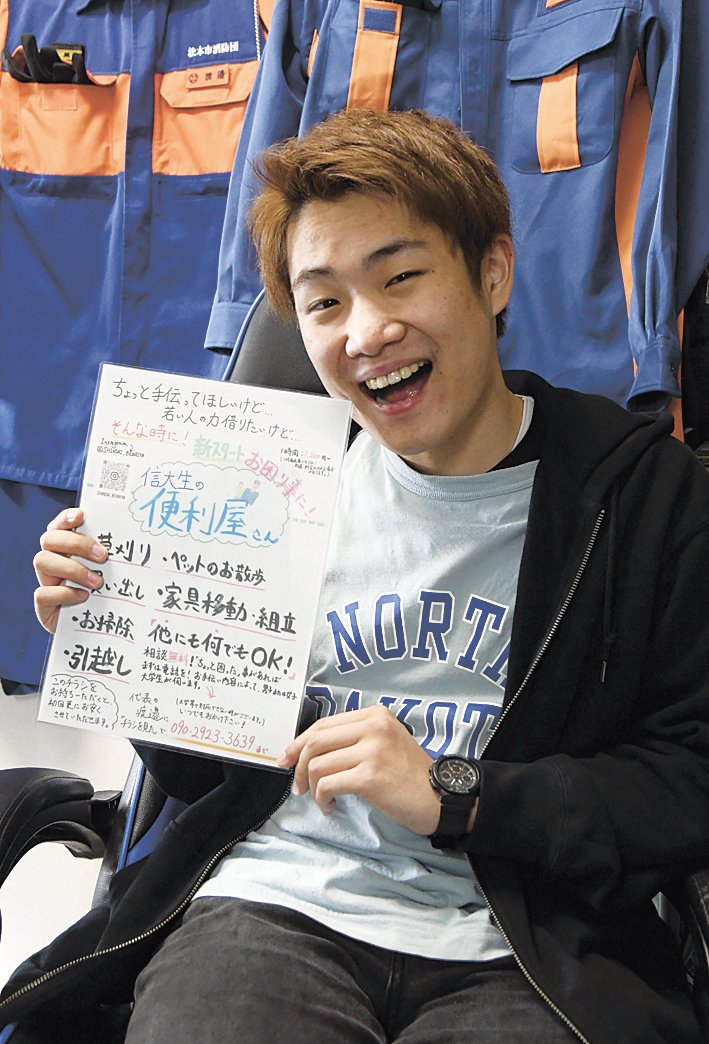 松本市消防団
渡邉
ちょっと手伝ってほしいけど…
若い人の力借りたいけど…
そんな時に!
新スタート
お困り事に!
1時間:1,200円〜
Instagram
@SHINDAI_BENRIYA
SHINDAI_BENRIYA
信大生の
便利屋さん
草刈り
・ペットのお散歩
い出し
・家具移動・組立
・お掃除
「他にも何でもOK!」
・引越し
相談無料!「ちょっと困った。」事があれば
まずは電話を!お手伝い内容によって、男子または女子
大学生が伺います。
(大学等で対応できない時がございます。)
いつでもおかけ下さい!
このチラシを
お持ちいただくと
初回更にお安く
させていただきます。
代表の
渡邉に
「チラシを見た」で
090-2923-3639まで
NORT
DAKOT